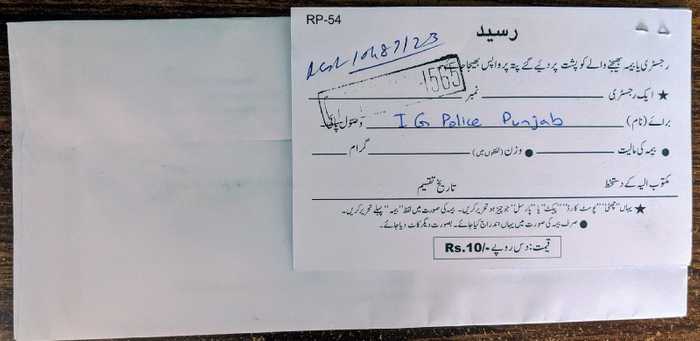 RP-54
رسید
رجسٹری یا بیمہ بھیجنے والے کو پشت پر دیے گئے پتہ پر واپس بھیجا جائے
1565
★ ایک رجسٹری نمبر
برائے (نام) I G Police Punjab وصول پائی
● بیمہ کی مالیت ● وزن (لفظوں میں) گرام
مکتوب الیہ کے دستخط تاریخ تقسیم
★ یہاں "چٹھی" "پوسٹ کارڈ" "پیکٹ" یا "پارسل" جو چیز ہو تحریر کریں۔ بیمہ کی صورت میں لفظ "بیمہ" پہلے تحریر کریں۔
● صرف بیمہ کی صورت میں یہاں اندراج کیا جائے۔ بصورت دیگر کاٹ دیا جائے۔
قیمت: دس روپے Rs.10/-